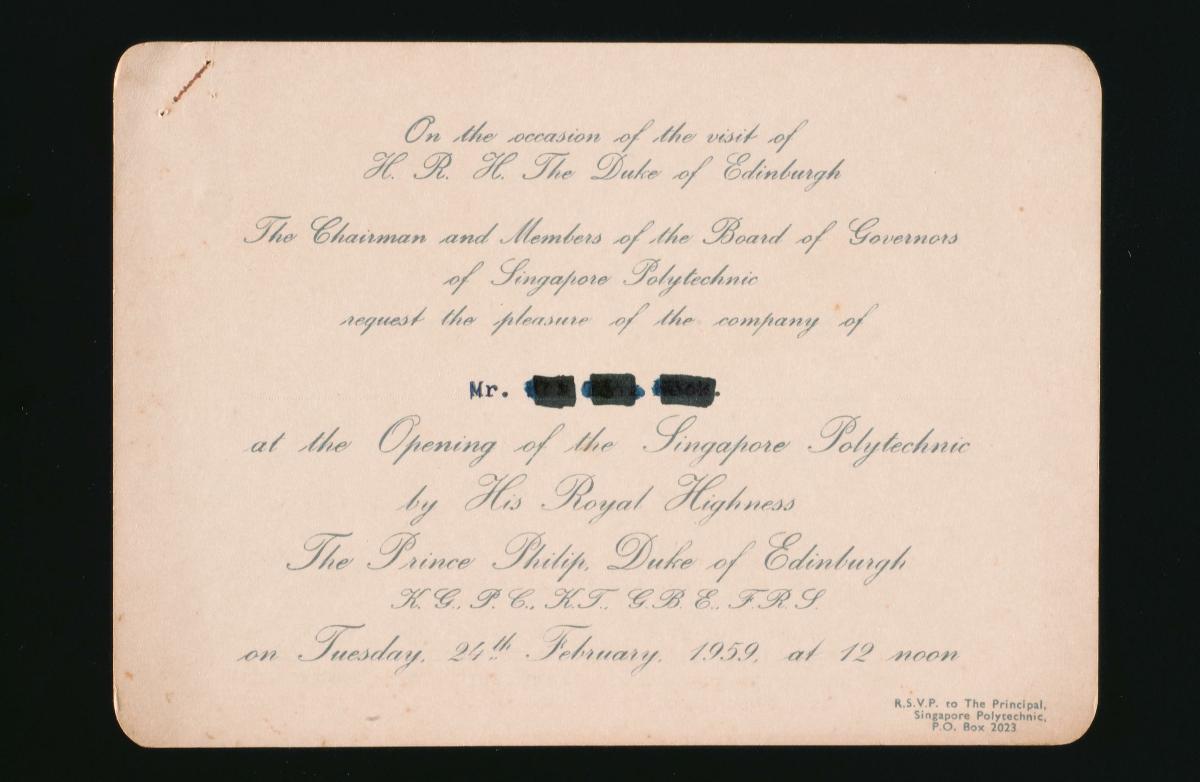 On the occasion of the visit of
H. R. H. The Duke of Edinburgh
The Chairman and Members of the Board of Governors
of Singapore Polytechnic
request the pleasure of the company of
Mr.
at the Opening of the Singapore Polytechnic
by His Royal Highness
The Prince Philip, Duke of Edinburgh
K.G., P.C., K.T., G.B.E., F.R.S.
on Tuesday, 24th February, 1959, at 12 noon
R.S.V.P. to The Principal,
Singapore Polytechnic,
P.O. Box 2023